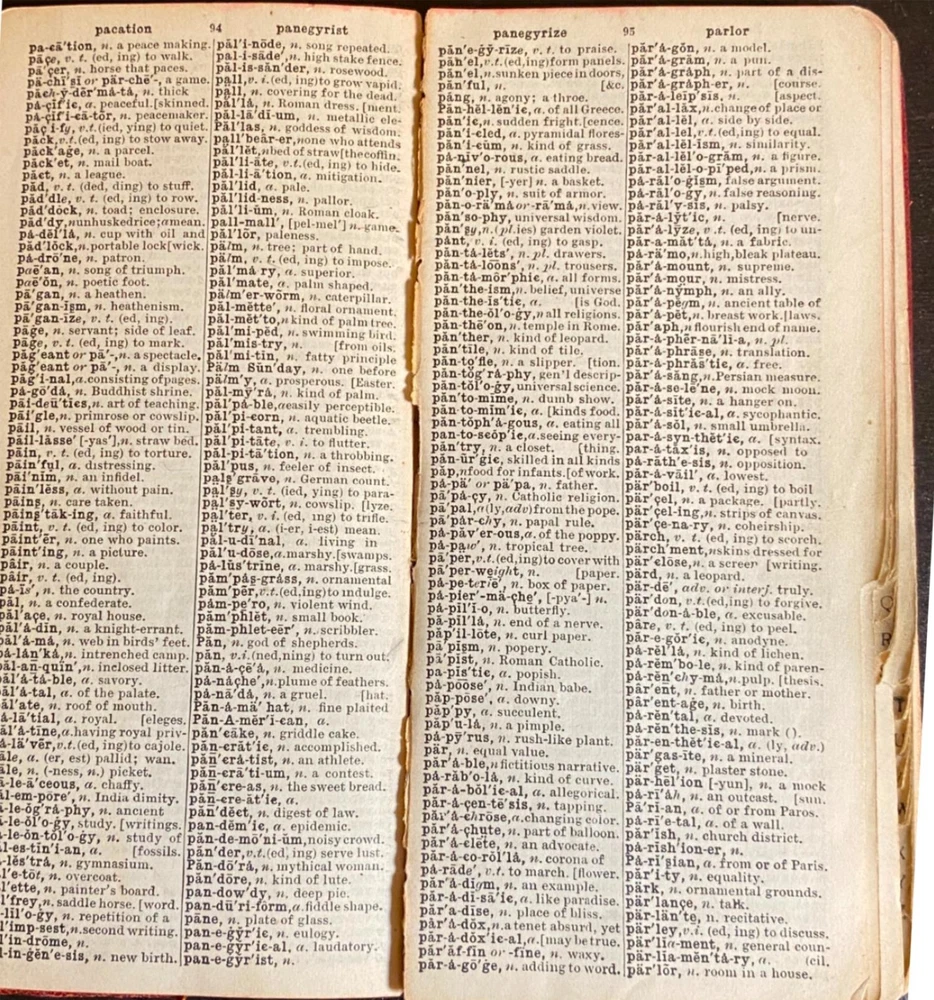 pacation 94 panegyrist
pa-cā'tion, n. a peace making.
pāçe, v. t. (ed, ing) to walk.
pā'çer, n. horse that paces.
pa-chï'si or pär-chē'-, a game.
păch-y̆-dẽr'má-tá, n. thick
pá-çĭf'ic, a. peaceful.[skinned.
pá-çĭf'i-cā-tŏr, n. peacemaker.
păç'i-fȳ, v.t.(ed, ying) to quiet.
păck,v.t.(ed, ing) to stow away.
păck'aġe, n. a parcel.
păck'et, n. mail boat.
păct, n. a league.
păd, v. t. (ded, ding) to stuff.
păd'dle, v. t. (ed, ing) to row.
păd'dŏck, n. toad; enclosure.
păd'dy,nunhuskedrice;amean.
pá-dĕl'lá, n. cup with oil and
păd'lŏck,n.portable lock[wick.
pá-drō'ne, n. patron.
paē'an, n. song of triumph.
paē'ŏn, n. poetic foot.
pā'gan, n. a heathen.
pā'gan-ĭsm, n. heathenism.
pā'gan-īze, v. t. (ed, ing).
pāġe, n. servant; side of leaf.
pāġe, v. t. (ed, ing) to mark.
păġ'eant or pā'-, n. a spectacle.
păġ'eant or pā'-, n. a display.
păġ'i-nal,a.consisting ofpages.
pá-gō'dá, n. Buddhist shrine.
pāi-deū'tics,n. art of teaching.
pāi'gle,n. primrose or cowslip.
pāil, n. vessel of wood or tin.
pāil-lăsse' [-yas'],n. straw bed.
pāin, v. t. (ed, ing) to torture.
pāin'fụl, a. distressing.
pāi'nim, n. an infidel.
pāin'lĕss, a. without pain.
pāins, n. care taken.
pāins'tāk-ing, a. faithful.
pāint, v. t. (ed, ing) to color.
pāint'ẽr, n. one who paints.
pāint'ing, n. a picture.
pâir, n. a couple.
pâir, v. t. (ed, ing).
pá-ïs', n. the country.
păl, n. a confederate.
păl'açe, n. royal house.
păl'á-dĭn, n. a knight-errant.
păl'á-má, n. web in birds' feet.
pá-lăn'ká, n. intrenched camp.
păl-an-quïn',n. inclosed litter.
păl'á-tá-ble, a. savory.
păl'á-tal, a. of the palate.
păl'ate, n. roof of mouth.
á-lā'tial, a. royal. [eleges.
ăl'á-tīne,a.having royal priv-
á-lä'vẽr,v.t.(ed, ing)to cajole.
āle, a. (er, est) pallid; wan.
āle, n. (-ness, n.) picket.
ā-le-ā'ceous, a. chaffy.
ăl-em-pōre', n. India dimity.
ā-le-ŏg'rá-phy, n. ancient
ā-le-ŏl'o-ġy, study. [writings.
ā-le-ŏn-tŏl'o-ġy, n. study of
ăl-es-tĭn'i-an, a. [fossils.
á-lĕs'trá, n. gymnasium.
ăl'e-tŏt, n. overcoat.
ăl'ette, n. painter's board.
l'frey,n. saddle horse. [word.
-lĭl'o-ġy, n. repetition of a
l'ĭmp-sest,n.second writing.
l'in-drōme, n.
l-in-ġĕn'e-sis, n. new birth.
păl'i-nōde, n. song repeated.
pal-i-sāde',n. high stake fence.
păl-is-săn'der, n. rosewood.
pạll, v. i.(ed, ing)to grow vapid.
pạll, n. covering for the dead.
păl'lá, n. Roman dress. [ment.
pál-lā'di-um, n. metallic ele-
Păl'las, n. goddess of wisdom.
pạll'beâr-er,none who attends
păl'lĕt,nbed of straw[thecoffin.
păl'li-āte, v.t.(ed, ing) to hide.
păl-li-ā'tion, a. mitigation.
păl'lid, a. pale.
păl'lid-ness, n. pallor.
păl'li-ŭm, n. Roman cloak.
pall-mall', [pel-mel'] n. game.
păl'lŏr, paleness.
pälm, n. tree; part of hand.
pälm, v. t. (ed, ing) to impose.
păl'má ry, a. superior.
păl'mate, a. palm shaped.
pälm'er-wôrm, n. caterpillar.
pál-mĕtte', n. floral ornament.
pál-mĕt'to,nkind of palm tree.
păl'mi-pĕd, n. swimming bird.
păl'mis-try, n. [from oils.
păl'mi-tĭn, n. fatty principle
Pälm Sŭn'day, n. one before
pälm'y, a. prosperous. [Easter.
pál-my̆'rá, n. kind of palm.
păl'pá-ble,aeasily perceptible.
păl'pi-corn, n. aquatic beetle.
păl'pi-tant, a. trembling.
păl'pi-tāte, v. i. to flutter.
păl-pi-tā'tion, n. a throbbing.
păl'pus, n. feeler of insect.
pạls'grāve, n. German count.
pạl'sy, v. t. (ied, ying) to para-
pạl'sy-wôrt, n. cowslip. [lyze.
pạl'ter, v. i. (ed, ing) to trifle.
pạl'try, a. (i-er, i-est) mean.
păl-u-dī'nal, a. living in
păl'u-dōse,a.marshy.[swamps.
pá-lŭs'trĭne, a. marshy.[grass.
păm'pás-gráss, n. ornamental
păm'pẽr,v.t.(ed,ing)to indulge.
pám-pe'ro, n. violent wind.
păm'phlĕt, n. small book.
păm-phlet-ēēr', n. scribbler.
Păn, n. god of shepherds.
păn, v.i.(ned,ning) to turn out.
păn-á-çē'á, n. medicine.
pá-năçhe',n.plume of feathers.
pá-nä'dá, n. a gruel. [hat.
Păn-á-mä' hat, n. fine plaited
Păn-A-mĕr'i-can, a.
păn'cāke, n. griddle cake.
păn-crăt'ic, n. accomplished.
păn'crá-tĭst, n. an athlete.
păn-crā'ti-um, n. a contest.
păn'cre-as, n. the sweet bread.
păn-cre-ăt'ic, a.
păn'dĕct, n. digest of law.
pan-dĕm'ic, a. epidemic.
păn-de-mō'ni-ŭm,noisy crowd.
păn'der,v.t.(ed, ing) serve lust.
păn-dō'rá, n. mythical woman.
păn'dōre, n. kind of lute.
pan-dow'dy, n. deep pie.
pan-dū'ri-fôrm,a.fiddle shape.
pāne, n. plate of glass.
pan-e-ġy̆r'ic, n. eulogy.
pan-e-ġy̆r'ic-al, a. laudatory.
pan-e-ġy̆r'ist, n.
panegyrize 95 parlor
păn'e-ġy̆-rīze, v. t. to praise.
păn'el,v.t.(ed,ing)form panels.
păn'el,n.sunken piece in doors,
păn'fụl, n. [&c.
păng, n. agony; a throe.
Păn-hĕl-lĕn'ic, a. of all Greece.
păn'ic,n. sudden fright.[cence.
păn'i-cled, a. pyramidal flores-
păn'i-cŭm, n. kind of grass.
pá-nĭv'o-rous, a. eating bread.
păn'nel, n. rustic saddle.
păn'nier, [-yer] n. a basket.
păn'o-ply, n. suit of armor.
păn-o-rä'má or-rā'má,n.view.
păn'so-phy, universal wisdom.
păn'sy,n.(pl.ies) garden violet.
pánt, v. i. (ed, ing) to gasp.
păn-tá-lĕts', n. pl. drawers.
păn-tá-lōōns', n. pl. trousers.
păn-tá-môr'phic, a. all forms.
păn'the-ĭsm,n. belief, universe
păn-the-ĭs'tic, a. [is God.
păn-the-ŏl'o-ġy,nall religions.
păn-thē'on,n.temple in Rome.
păn'ther, n. kind of leopard.
păn'tīle, n. kind of tile.
păn-to'fle, n. a slipper. [tion.
păn-tŏg'rá-phy, gen'l descrip-
păn-tŏl'o-ġy,universal science.
păn'to-mīme, n. dumb show.
păn-to-mĭm'ic, a. [kinds food.
păn-tŏph'á-gous, a. eating all
pan-to-scŏp'ic,a.seeing every-
păn'try, n. a closet. [thing.
păn-ûr'gic, skilled in all kinds
păp,nfood for infants.[of work.
pá-pä' or pä'pa, n. father.
pā'pá-çy, n. Catholic religion.
pā'pal,a(ly,adv)from the pope.
pā'pár-chy, n. papal rule.
pá-păv'er-ous,a.of the poppy.
pá-paw', n. tropical tree.
pā'per,v.t.(ed,ing)to cover with
pā'per-weight, n. [paper.
pá-pe-terie', n. box of paper.
pá-pier'-mä-çhe', [-pya'-] n.
pá-pĭl'i-o, n. butterfly.
pá-pĭl'lá, n. end of a nerve.
păp'il-lōte, n. curl paper.
pā'pĭsm, n. popery.
pā'pist, n. Roman Catholic.
pá-pĭs'tic, a. popish.
pá-pōōse', n. Indian babe.
păp-pōse', a. downy.
păp'py, a. succulent.
păp'u-lá, n. a pimple.
pá-pȳ'rus, n. rush-like plant.
pär, n. equal value.
păr'á-ble,nfictitious narrative.
pá-răb'o-lá, n. kind of curve.
păr-á-bŏl'ic-al, a. allegorical.
păr-á-çen-tē'sis, n. tapping.
păr'á-chrōse,a.changing color.
păr'á-çhute,n. part of balloon.
păr'á-clēte, n. an advocate.
păr'á-co-rŏl'lá, n. corona of
pá-rāde', v.t. to march. [flower.
păr'á-dīgm, n. an example.
păr'á-di-sā'ic, a. like paradise.
păr'á-dīse, n. place of bliss.
păr'á-dŏx,n.a tenet absurd, yet
păr-á-dŏx'ic-al,a.[may be true.
păr'ăf-fin or -fīne, n. waxy.
păr-á-gō'ġe, n. adding to word.
păr'á-gŏn, n. a model.
păr'á-grăm, n. a pun.
păr'á-gráph, n. part of a dis-
păr'á-gráph-er, n. [course.
păr'á-leīp'sis, n. [aspect.
păr'al-lăx,n.change of place or
păr'al-lĕl, a. side by side.
păr'al-lel,v.t.(ed, ing)to equal.
păr'al-lĕl-ism, n. similarity.
păr-al-lĕl'o-grăm, n. a figure.
păr-al-lĕl-o-pī'ped,n.a prism.
pá-răl'o-ġĭsm, false argument.
pá-răl'o-gy, false reasoning.
pá-răl'y-sis, n. palsy.
păr-á-ly̆t'ic, n. [nerve.
păr'á-lȳze, v.t. (ed, ing) to un-
păr-a-măt'tá, n. a fabric.
pá-rä'mo,n.high,bleak plateau.
păr'á-mount, n. supreme.
păr'á-mour, n. mistress.
păr'á-ny̆mph, n. an ally.
păr'á-pegm, n. ancient table of
păr'á-pĕt,n. breast work.[laws.
păr'aph,nflourish end of name.
păr-á-phẽr-nā'li-a, n. pl.
păr'á-phrāse, n. translation.
păr-á-phrăs'tic, a. free.
păr'á-săng,n.Persian measure.
păr-á-se-le'ne, n. mock moon.
păr'á-sīte, n. a hanger on.
păr-á-sĭt'ic-al, a. sycophantic.
păr'á-sŏl, n. small umbrella.
păr-á-syn-thĕt'ic, a. [syntax.
păr-á-tăx'is, n. opposed to
pá-răth'e-sis, n. opposition.
păr-á-vāil', a. lowest.
pär'boil, v.t. (ed, ing) to boil
pär'çel, n. a package. [partly.
pär'çel-ing,n. strips of canvas.
pär'çe-na-ry, n. coheirship.
pärch, v. t. (ed, ing) to scorch.
pärch'ment,nskins dressed for
pär'clōse,n. a screen [writing.
pärd, n. a leopard.
pär-dē', adv. or interj. truly.
pär'don, v.t.(ed,ing) to forgive.
pär'don-á-ble, a. excusable.
pâre, v. t. (ed, ing) to peel.
păr-e-gŏr'ic, n. anodyne.
pá-rĕl'lá, n. kind of lichen.
pá-rĕm'bo-le, n. kind of paren-
pá-rĕn'chy-má,n.pulp. [thesis.
păr'ent, n. father or mother.
păr'ent-aġe, n. birth.
pá-rĕn'tal, a. devoted.
pá-rĕn'the-sis, n. mark ().
păr-en-thĕt'ic-al, a. (ly, adv.)
pär'gas-īte, n. a mineral.
pär'ġet, n. plaster stone.
pär-hēl'ion [-yun], n. a mock
pá-rī'áh, n. an outcast. [sun.
Pā'ri-an, a. of or from Paros.
pá-rī'e-tal, a. of a wall.
păr'ish, n. church district.
pá-rĭsh'ion-er, n.
Pá-rĭ'sian, a. from or of Paris.
păr'i-ty, n. equality.
pärk, n. ornamental grounds.
pär'lançe, n. talk.
pär-län'te, n. recitative.
pär'ley,v.i. (ed, ing) to discuss.
pär'lia-ment, n. general coun-
pär-lia-mĕn'tá-ry, a. [cil.
pär'lŏr, n. room in a house.